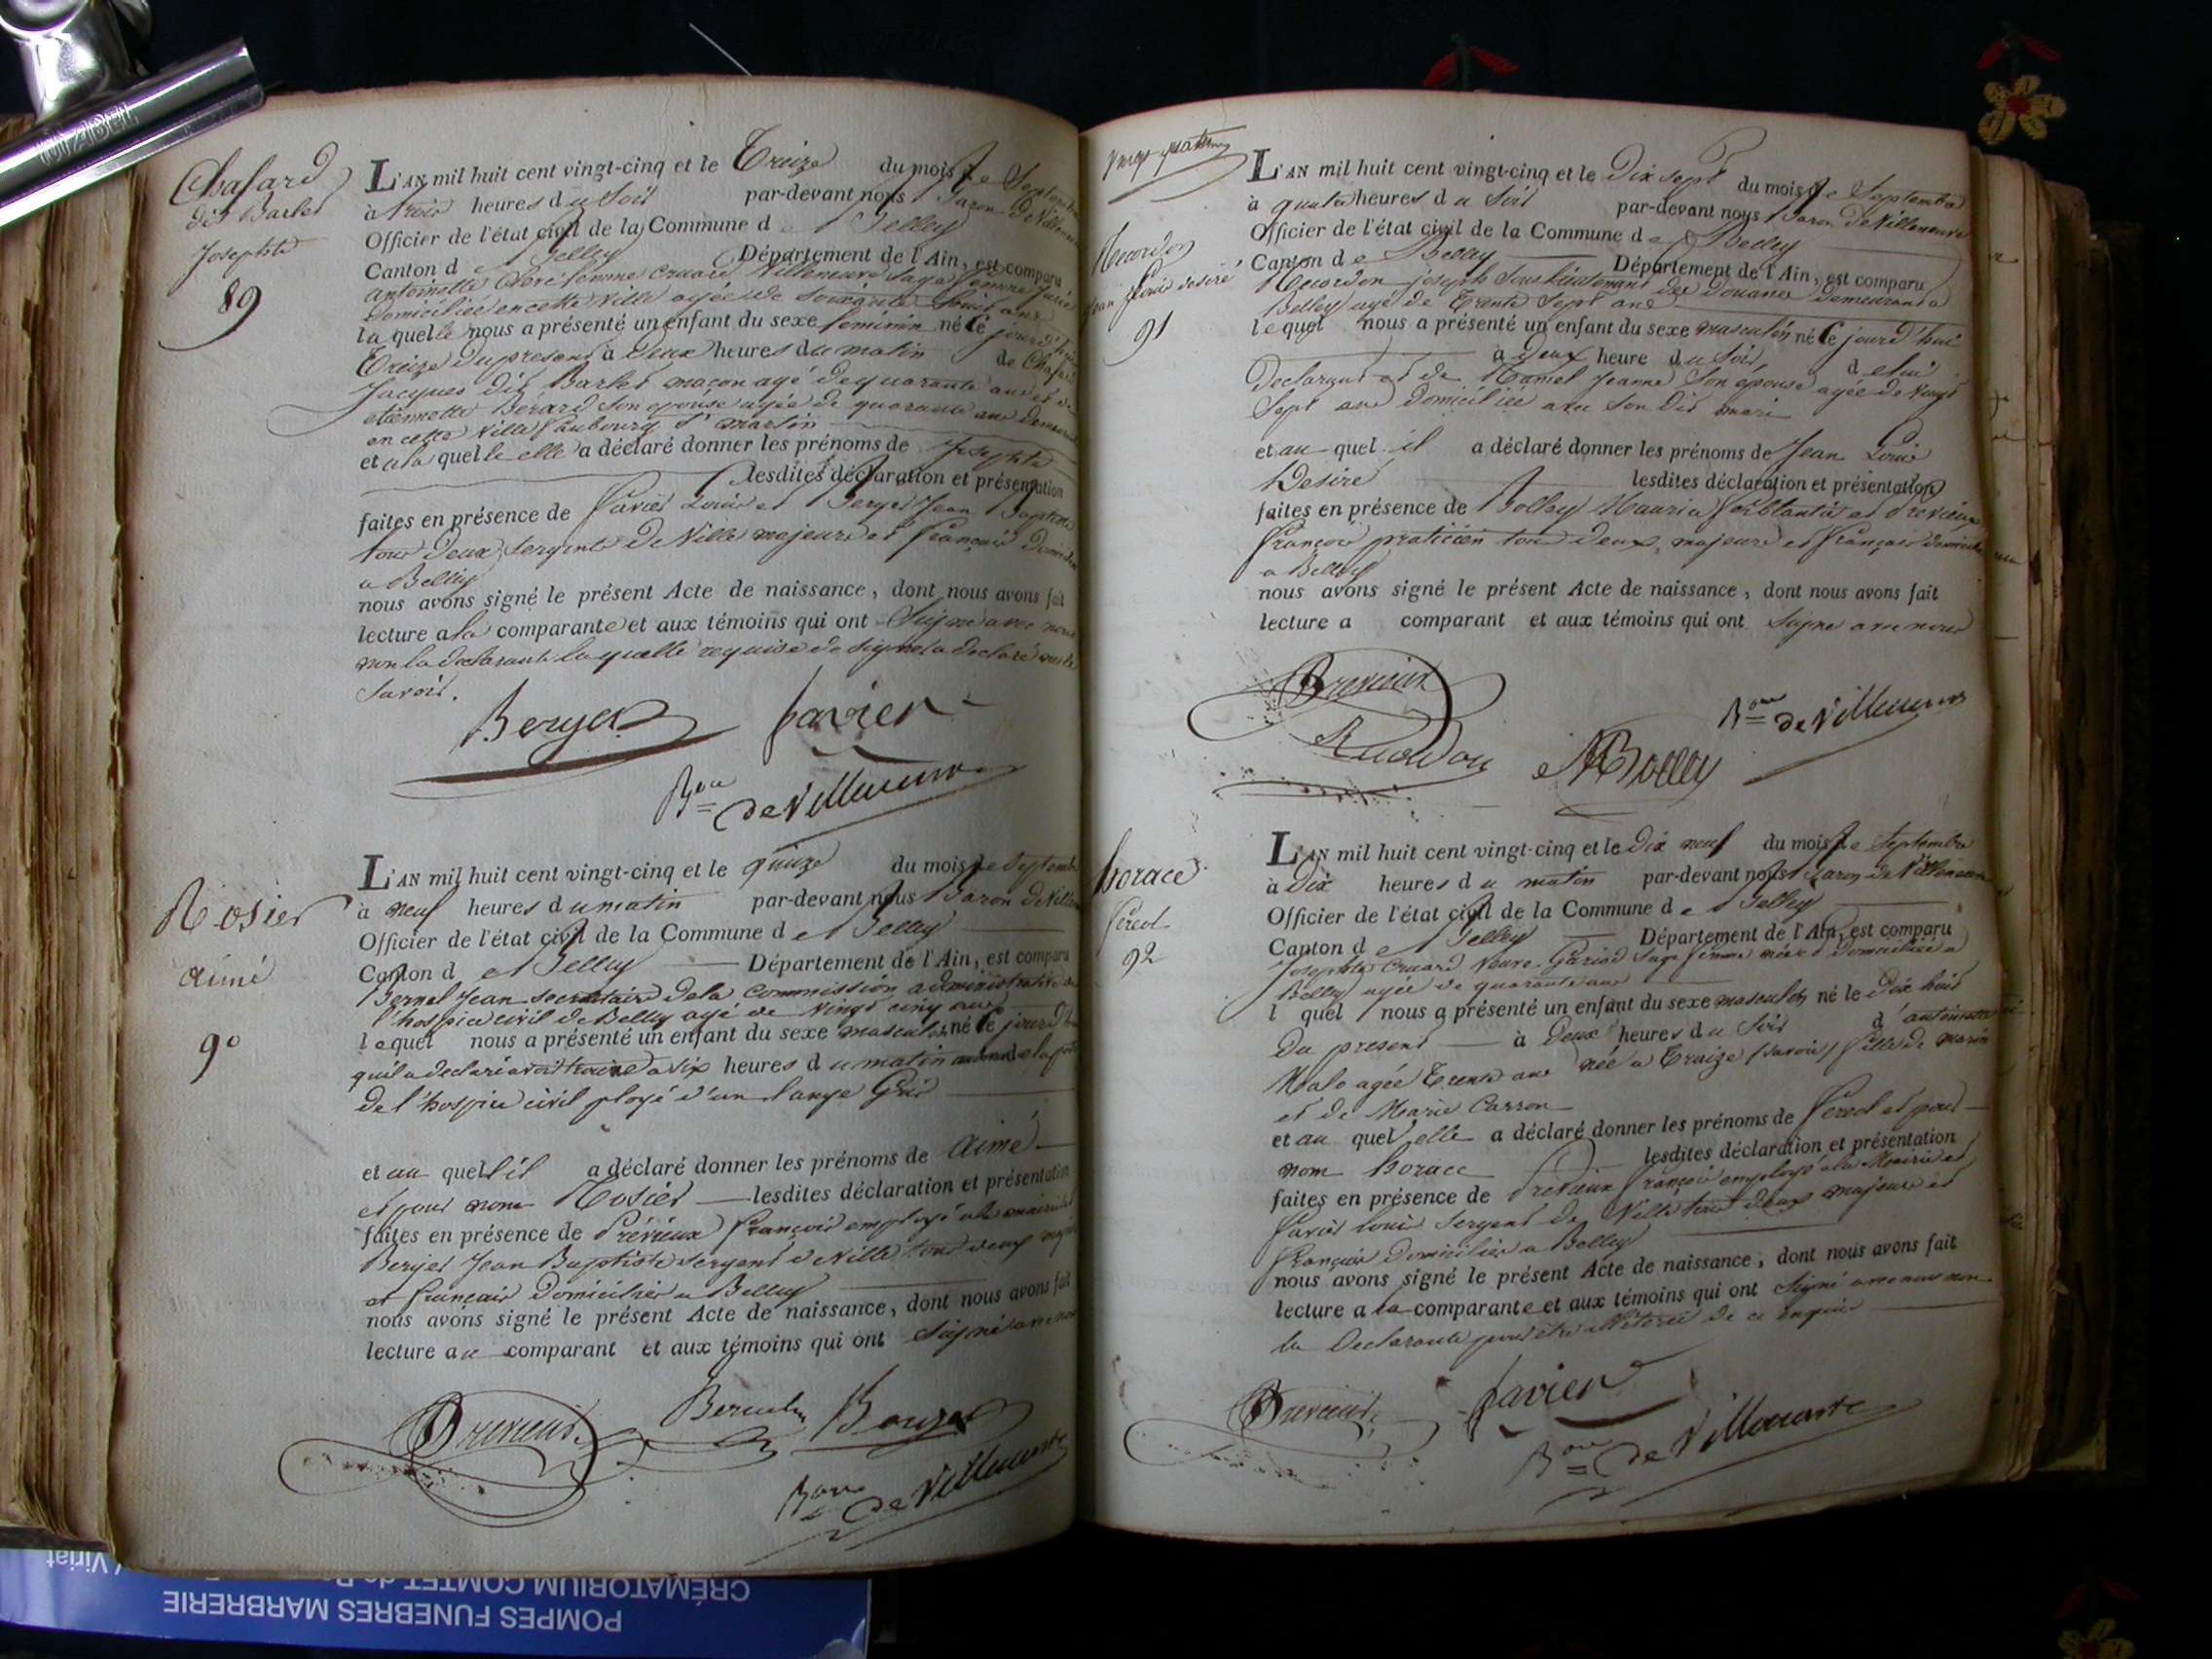 Chafard
dit Barlet
Josephte
89
L'AN mil huit cent vingt-cinq et le Treize du mois de Septembre
à trois heures du Soir par-devant nous Baron De Villeneuve
Officier de l'état civil de la Commune de Belley
Canton de Belley Département de l'Ain, est comparu
antoinette femme cruard Villeneuve Sage femme Jurée
Domiciliée en cette Ville agée de soixante huit ans
la quelle nous a présenté un enfant du sexe féminin né Ce jourd'hui
Treize du present à Deux heures du matin de Chafard
Jacques dit Barlet maçon agé de quarante ans et de
etiennette Bérard Son epouse agée de quarante ans demeurant
en cette Ville faubourg St martin
et a la quelle elle a déclaré donner les prénoms de Josephte
lesdites déclaration et présentation
faites en présence de Favier Louis et Berger Jean Baptiste
tous deux Sergents De Ville majeurs et français Domiciliés
a Belley
nous avons signé le présent Acte de naissance, dont nous avons fait
lecture a la comparante et aux témoins qui ont Signé avec nous
non la declarante laquelle requise de signer a declaré ne le
Savoir.
Berger Favier
Bon de Villeneuve
Rosier
aimé
90
L'AN mil huit cent vingt-cinq et le quinze du mois de Septembre
à neuf heures du matin par-devant nous Baron de Villeneuve
Officier de l'état civil de la Commune de Belley
Canton de Belley Département de l'Ain, est comparu
Bernel Jean secretaire de la Commission administrative de
l'hospice civil de Belley agé de Vingt cinq ans
lequel nous a présenté un enfant du sexe masculin né Ce jourd'hui
qu'il a declaré avoir trouvé a six heures du matin
de l'hospice civil ployé d'un lange Gris
et au quel il a déclaré donner les prénoms de aimé
et pour nom Rosier lesdites déclaration et présentation
faites en présence de Prévieux François employé a la mairie et
Berger Jean Baptiste sergent de Ville tous deux majeurs
et français Domiciliés a Belley
nous avons signé le présent Acte de naissance, dont nous avons fait
lecture au comparant et aux témoins qui ont Signé avec nous
Previeux Berger
Bon de Villeneuve
vingt quatre
Recordon
Jean Louis desiré
91
L'AN mil huit cent vingt-cinq et le Dix sept du mois de Septembre
à quatre heures du Soir par-devant nous Baron de Villeneuve
Officier de l'état civil de la Commune de Belley
Canton de Belley Département de l'Ain, est comparu
Recordon joseph Sous lieutenant des Douanes demeurant a
Belley agé de Trente Sept ans
lequel nous a présenté un enfant du sexe masculin né Ce jourd'hui
à Deux heure du Soir, de lui
Declarant et de Ramel Jeanne Son épouse agée de Vingt
Sept ans domiciliée avec Son Dit mari
et au quel il a déclaré donner les prénoms de Jean Louis
Desiré lesdites déclaration et présentation
faites en présence de Bolley Maurice ferblantier et Previeux
François praticien tous deux majeurs et français domiciliés
a Belley
nous avons signé le présent Acte de naissance, dont nous avons fait
lecture a comparant et aux témoins qui ont Signé avec nous
Previeux
Bon de Villeneuve
Recordon
Bolley
horace
fereol
92
L'AN mil huit cent vingt-cinq et le Dix neuf du mois de Septembre
à Dix heures du matin par-devant nous Baron de Villeneuve
Officier de l'état civil de la Commune de Belley
Canton de Belley Département de l'Ain, est comparu
Josephte Cruard Veuve Sage femme Domiciliée a
Belley agée de quarante ans
l quel nous a présenté un enfant du sexe masculin né le Dix huit
Du present à Deux heures du Soir d'antoinette
Malo agée Trente ans née a Traize (Savoie) fille de marin
et de Marie Carron
et au quel elle a déclaré donner les prénoms de fereol et pour
nom horace lesdites déclaration et présentation
faites en présence de Previeux françois employé a la Mairie et
Favier louis Sergent de Ville tous deux majeurs et
français Domiciliés a Belley
nous avons signé le présent Acte de naissance, dont nous avons fait
lecture a la comparante et aux témoins qui ont Signé avec nous non
la Declarante pour être illéterée de ce enquise
Previeux Favier
Bon de Villeneuve
POMPES FUNEBRES MARBRERIE
CRÉMATORIUM COMTET de
Viriat